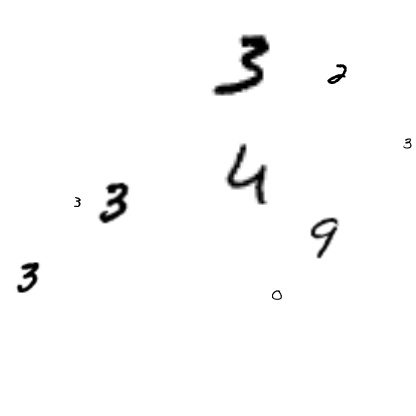 3 2
3
4
3 3
9
3
0